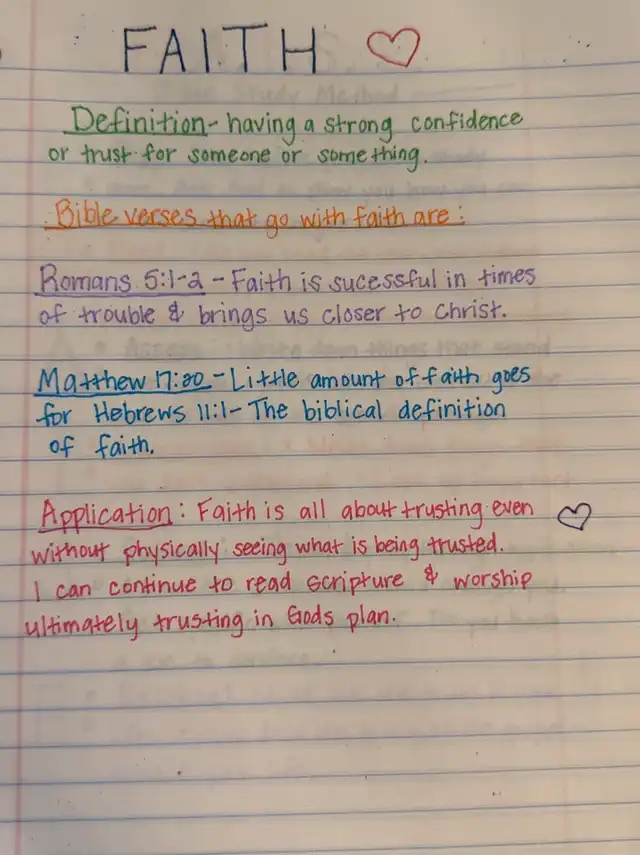 FAITH
Definition- having a strong confidence
or trust for someone or something.
Bible verses that go with faith are:
Romans 5:1-2 - Faith is sucessful in times
of trouble & brings us closer to Christ.
Matthew 17:20 - Little amount of faith goes
for Hebrews 11:1- The biblical definition
of faith.
Application: Faith is all about trusting even
without physically seeing what is being trusted.
I can continue to read scripture & worship
ultimately trusting in Gods plan.